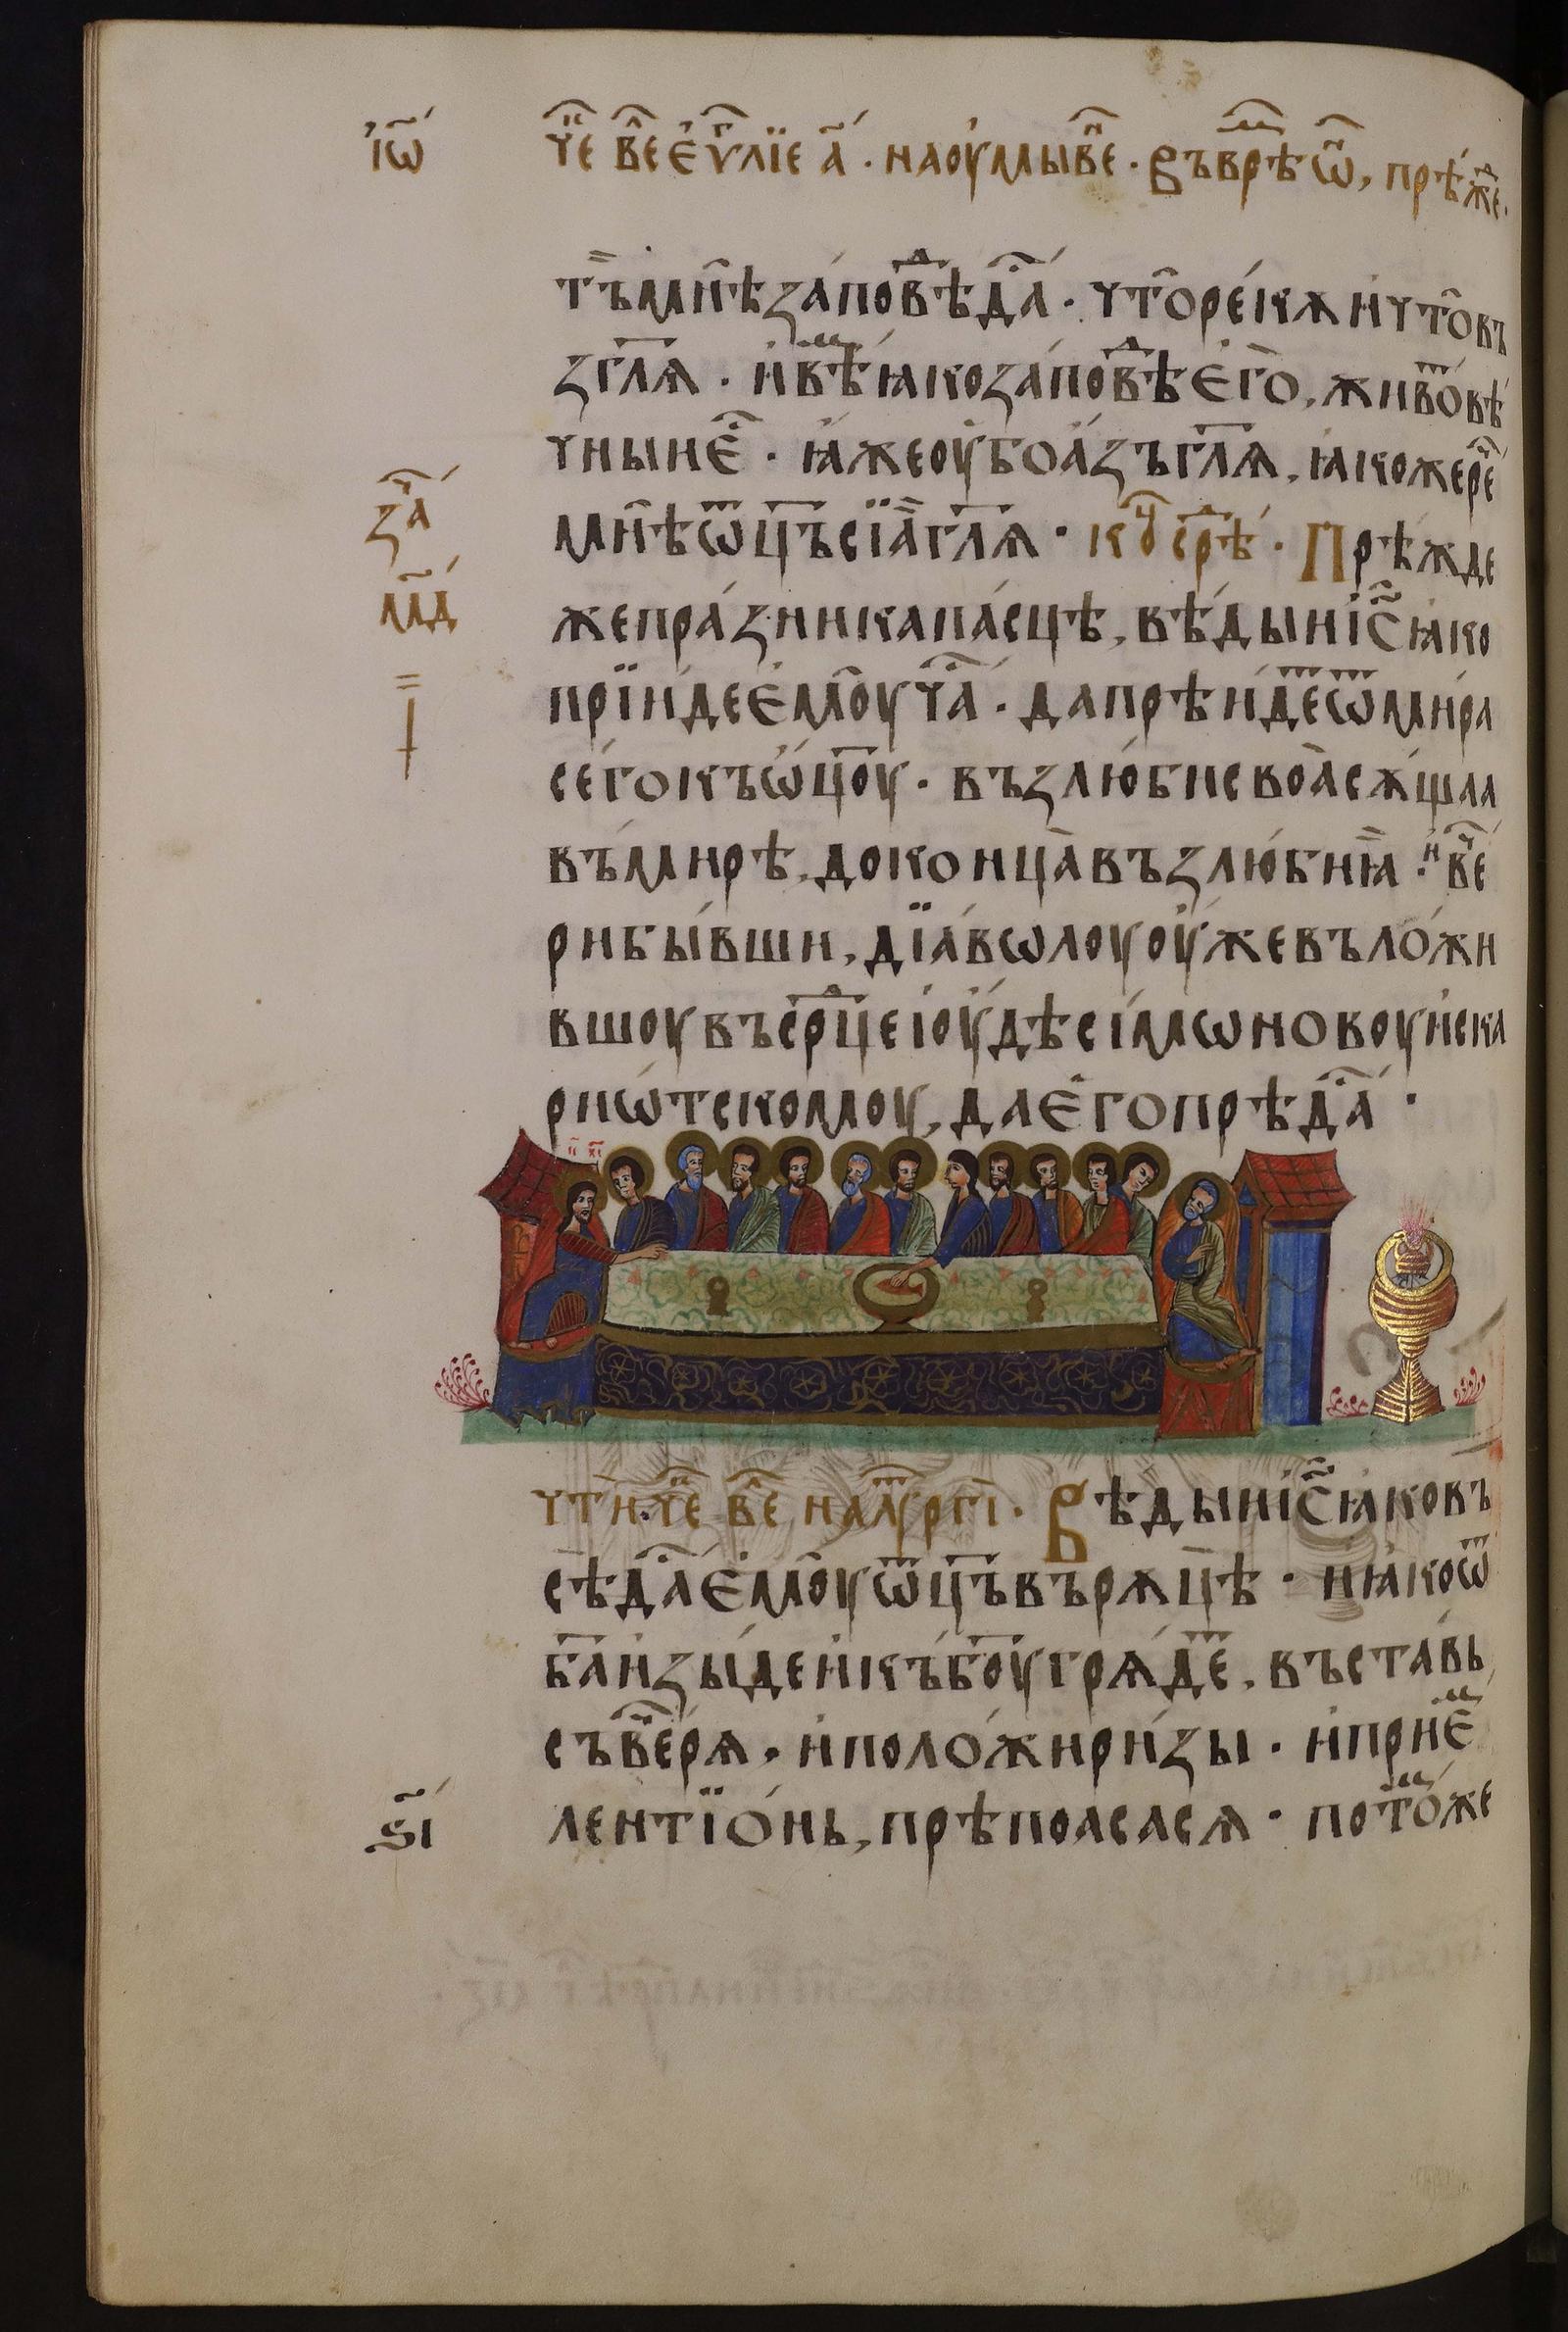 і҆ѡ҃
че҃ ве҃ є҆ѵ҃лїе а҃ · на оу҆мыве · въ врѣ ѡ҃, прѣⷤже.
тъ мнѣ заповѣда · что рекѫ и҆ что въ
зг҃лѧ · и҆ вѣⷨ ꙗко заповѣⷣ є҆го, живоⷮ вѣ
чныи є҆ · ꙗ҆же оубо а҆зъ г҃лѧ, ꙗкоже ре
за҃
мнѣ ѿц҃ъ сїа г҃лѧ · коⷰ҇ среⷣѣ · Прѣжде
м҃д
же празника пасцѣ, вѣды и і҃с ꙗко
прїиде є҆моу чⷭ҇а · да прѣидеⷮ ѿ мира
сего къ ѡ҆ц҃оу · възлюби своѧ сѫщаа
въ мирѣ, до конца възлюби ꙗ · и҆ вече
ри бывши, дїаволоу оу҆же въложи
вшоу въ срⷣце і҆оу҆дѣ сімѡновоу и҆ска
риѡтскомоу, да є҆го прѣдаⷭ҇ ·
чти · че҃ ве҃ на лѷⷮргі · Вѣды и і҃с ꙗко въ
сѣ даⷭ҇ є҆моу ѿц҃ъ въ рѫцѣ · и ꙗко ѿ
б҃а и҆зыде и҆ къ б҃оу грѧдеⷮ, въставь
съ вечерѧ, и҆ положи ризы · и҆ приеⷨ
ѕ҃і
лентїонь, прѣпоаса сѧ · потоⷨже